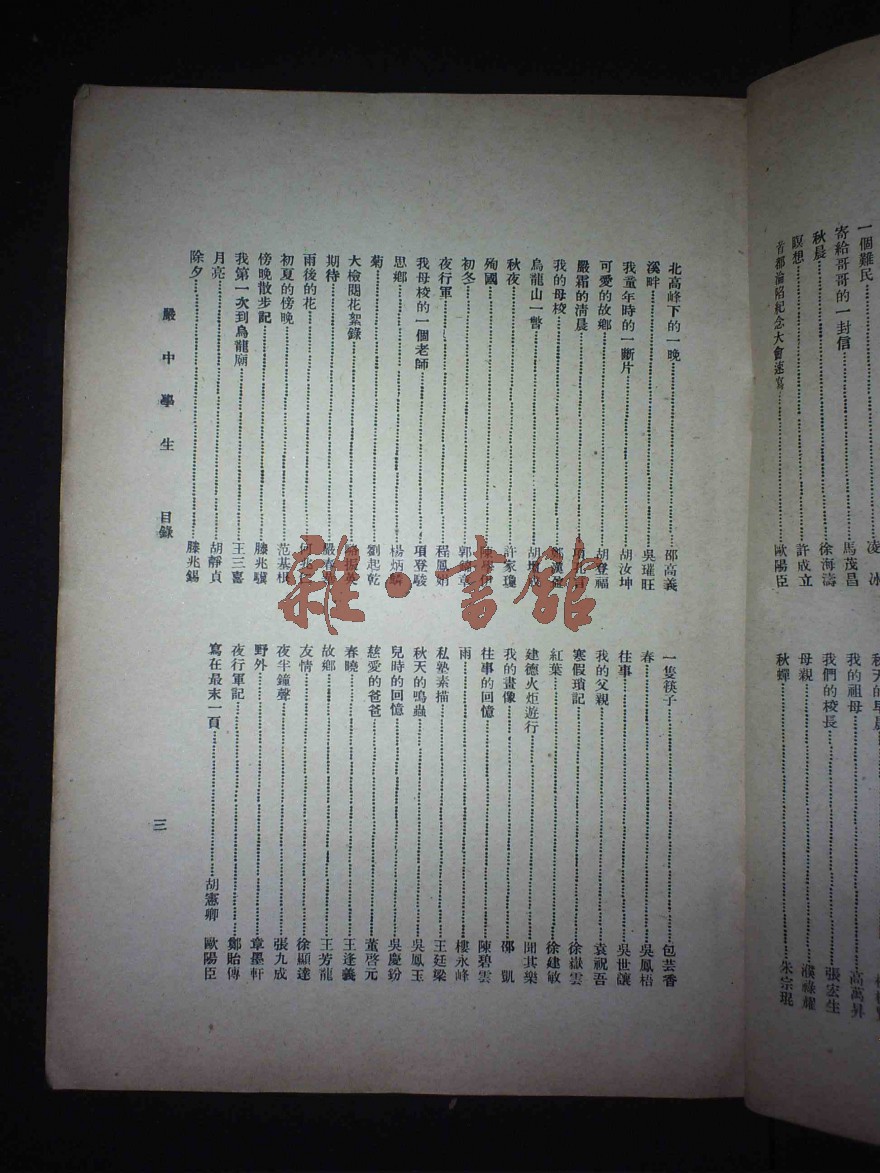 一個難民………凌冰
寄給哥哥的一封信………馬茂昌
秋晨………徐海濤
瞑想………許成立
首都淪陷紀念大會速寫………歐陽臣
我的祖母………高萬昇
我們的校長………張宏生
母親………濮祿耀
秋蟬………朱宗琨
北高峰下的一晚………邵高義
溪畔………吳璀旺
我童年時的一斷片………胡汝坤
可愛的故鄉………胡登福
嚴霜的清晨………
我的母校………
烏龍山一瞥………胡
秋夜………許家瓊
殉國………
初冬………郭
夜行軍………程鳳娟
我母校的一個老師………項登駿
思鄉………楊炳麟
菊………劉起乾
大檢閱花絮錄………
期待………嚴春
雨後的花………何
初夏的傍晚………范基根
傍晚散步記………滕兆驥
我第一次到烏龍廟………王三喜
月亮………胡靜貞
除夕………滕兆錫
一隻筷子………包芸香
春………吳鳳梧
往事………吳世讓
我的父親………袁祝吾
寒假瑣記………徐嶽雲
紅葉………徐建敏
建德火炬遊行………聞其樂
我的畫像………邵凱
往事的回憶………陳碧雲
雨………樓永峰
私塾素描………王廷梁
秋天的鳴蟲………吳鳳玉
兒時的回憶………吳慶鈖
慈愛的爸爸………董啓元
春曉………王逢義
故鄉………王芳龍
友情………徐顯達
夜半鐘聲………張九成
野外………章墨軒
夜行軍記………鄭貽傳
寫在最末一頁………胡憲卿 歐陽臣
嚴中學生 目錄
三
雜·書館